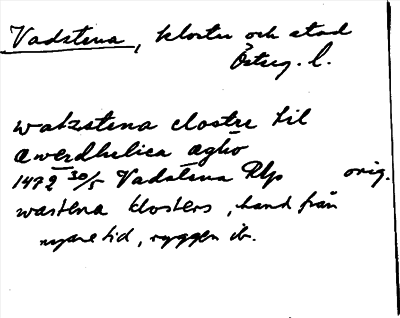 Vadstena, kloster och stad
Österg. l.
watzstena closter til
awerdhelica ægho
1472 30/5 Vadstena Rlp orig.
wastena klosters, hand från
nyare tid, ryggen ib.